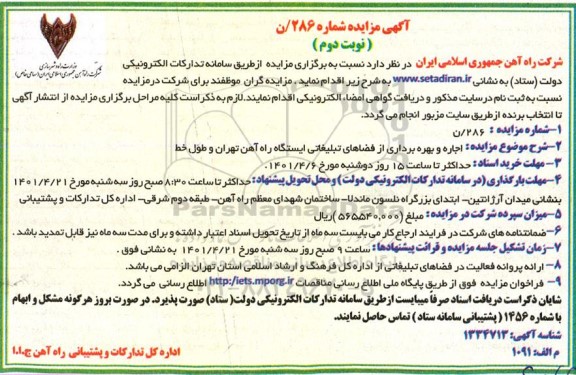 آگهی مزایده شماره ۲۸۶/ن
( نوبت دوم )
شرکت راه آهن جمهوری اسلامی ایران در نظر دارد نسبت به برگزاری مزایده ازطریق سامانه تدارکات الکترونیکی
دولت (ستاد) به نشانی www.setadiran.ir به شرح زیر اقدام نماید . مزایده گران موظفند برای شرکت درمزایده
نسبت به ثبت نام درسایت مذکور و دریافت گواهی امضاء الکترونیکی اقدام نمایند.لازم به ذکراست کلیه مراحل برگزاری مزایده از انتشار آگهی
تا انتخاب برنده ازطریق سایت مزبور انجام می گردد.
۱-شماره مزایده : ۲۸۶/ن
۲-شرح موضوع مزایده: اجاره و بهره برداری از فضاهای تبلیغاتی ایستگاه راه آهن تهران و طول خط
۳-مهلت خرید اسناد: حداکثر تا ساعت ۱۵ روز دوشنبه مورخ ۱۴۰۱/۴/۶.
۴-مهلت بارگذاری (در سامانه تدارکات الکترونیکی دولت) و محل تحویل پیشنهاد: حداکثر تا ساعت ۸:۳۰ صبح روز سه شنبه مورخ ۱۴۰۱/۴/۲۱
بنشانی میدان آرژانتین- ابتدای بزرگراه نلسون ماندلا- ساختمان شهدای معظم راه آهن- طبقه دوم شرقی- اداره کل تدارکات و پشتیبانی
۵-میزان سپرده شرکت در مزایده : مبلغ (۵۶۵۵۴۰,۰۰۰) ریال
۶- ضمانتنامه های شرکت در فرایند ارجاع کار می بایست سه ماه از تاریخ تحویل اسناد اعتبار داشته و برای مدت سه ماه نیز قابل تمدید باشد .
۷-زمان تشکیل جلسه مزایده و قرائت پیشنهادها: ساعت ۹ صبح روز سه شنبه مورخ ۱۴۰۱/۴/۲۱ به نشانی فوق .
۸- ارائه پروانه فعالیت در فضاهای تبلیغاتی از اداره کل فرهنگ و ارشاد اسلامی استان تهران الزامی می باشد.
۹- فراخوان مزایده فوق از طریق پایگاه ملی اطلاع رسانی مناقصات http:/iets.mporg.ir اطلاع رسانی می گردد.
شایان ذکراست دریافت اسناد صرفاً میبایست ازطریق سامانه تدارکات الکترونیکی دولت( ستاد) صورت پذیرد. در صورت بروز هرگونه مشکل و ابهام
با شماره ۱۴۵۶ ( پشتیبانی سامانه ستاد ) تماس حاصل نمایند.
شناسه آگهی: ۱۳۳۴۷۱۳
م الف: ۱۰۹۱
اداره کل تدارکات و پشتیبانی راه آهن ج.ا.ا